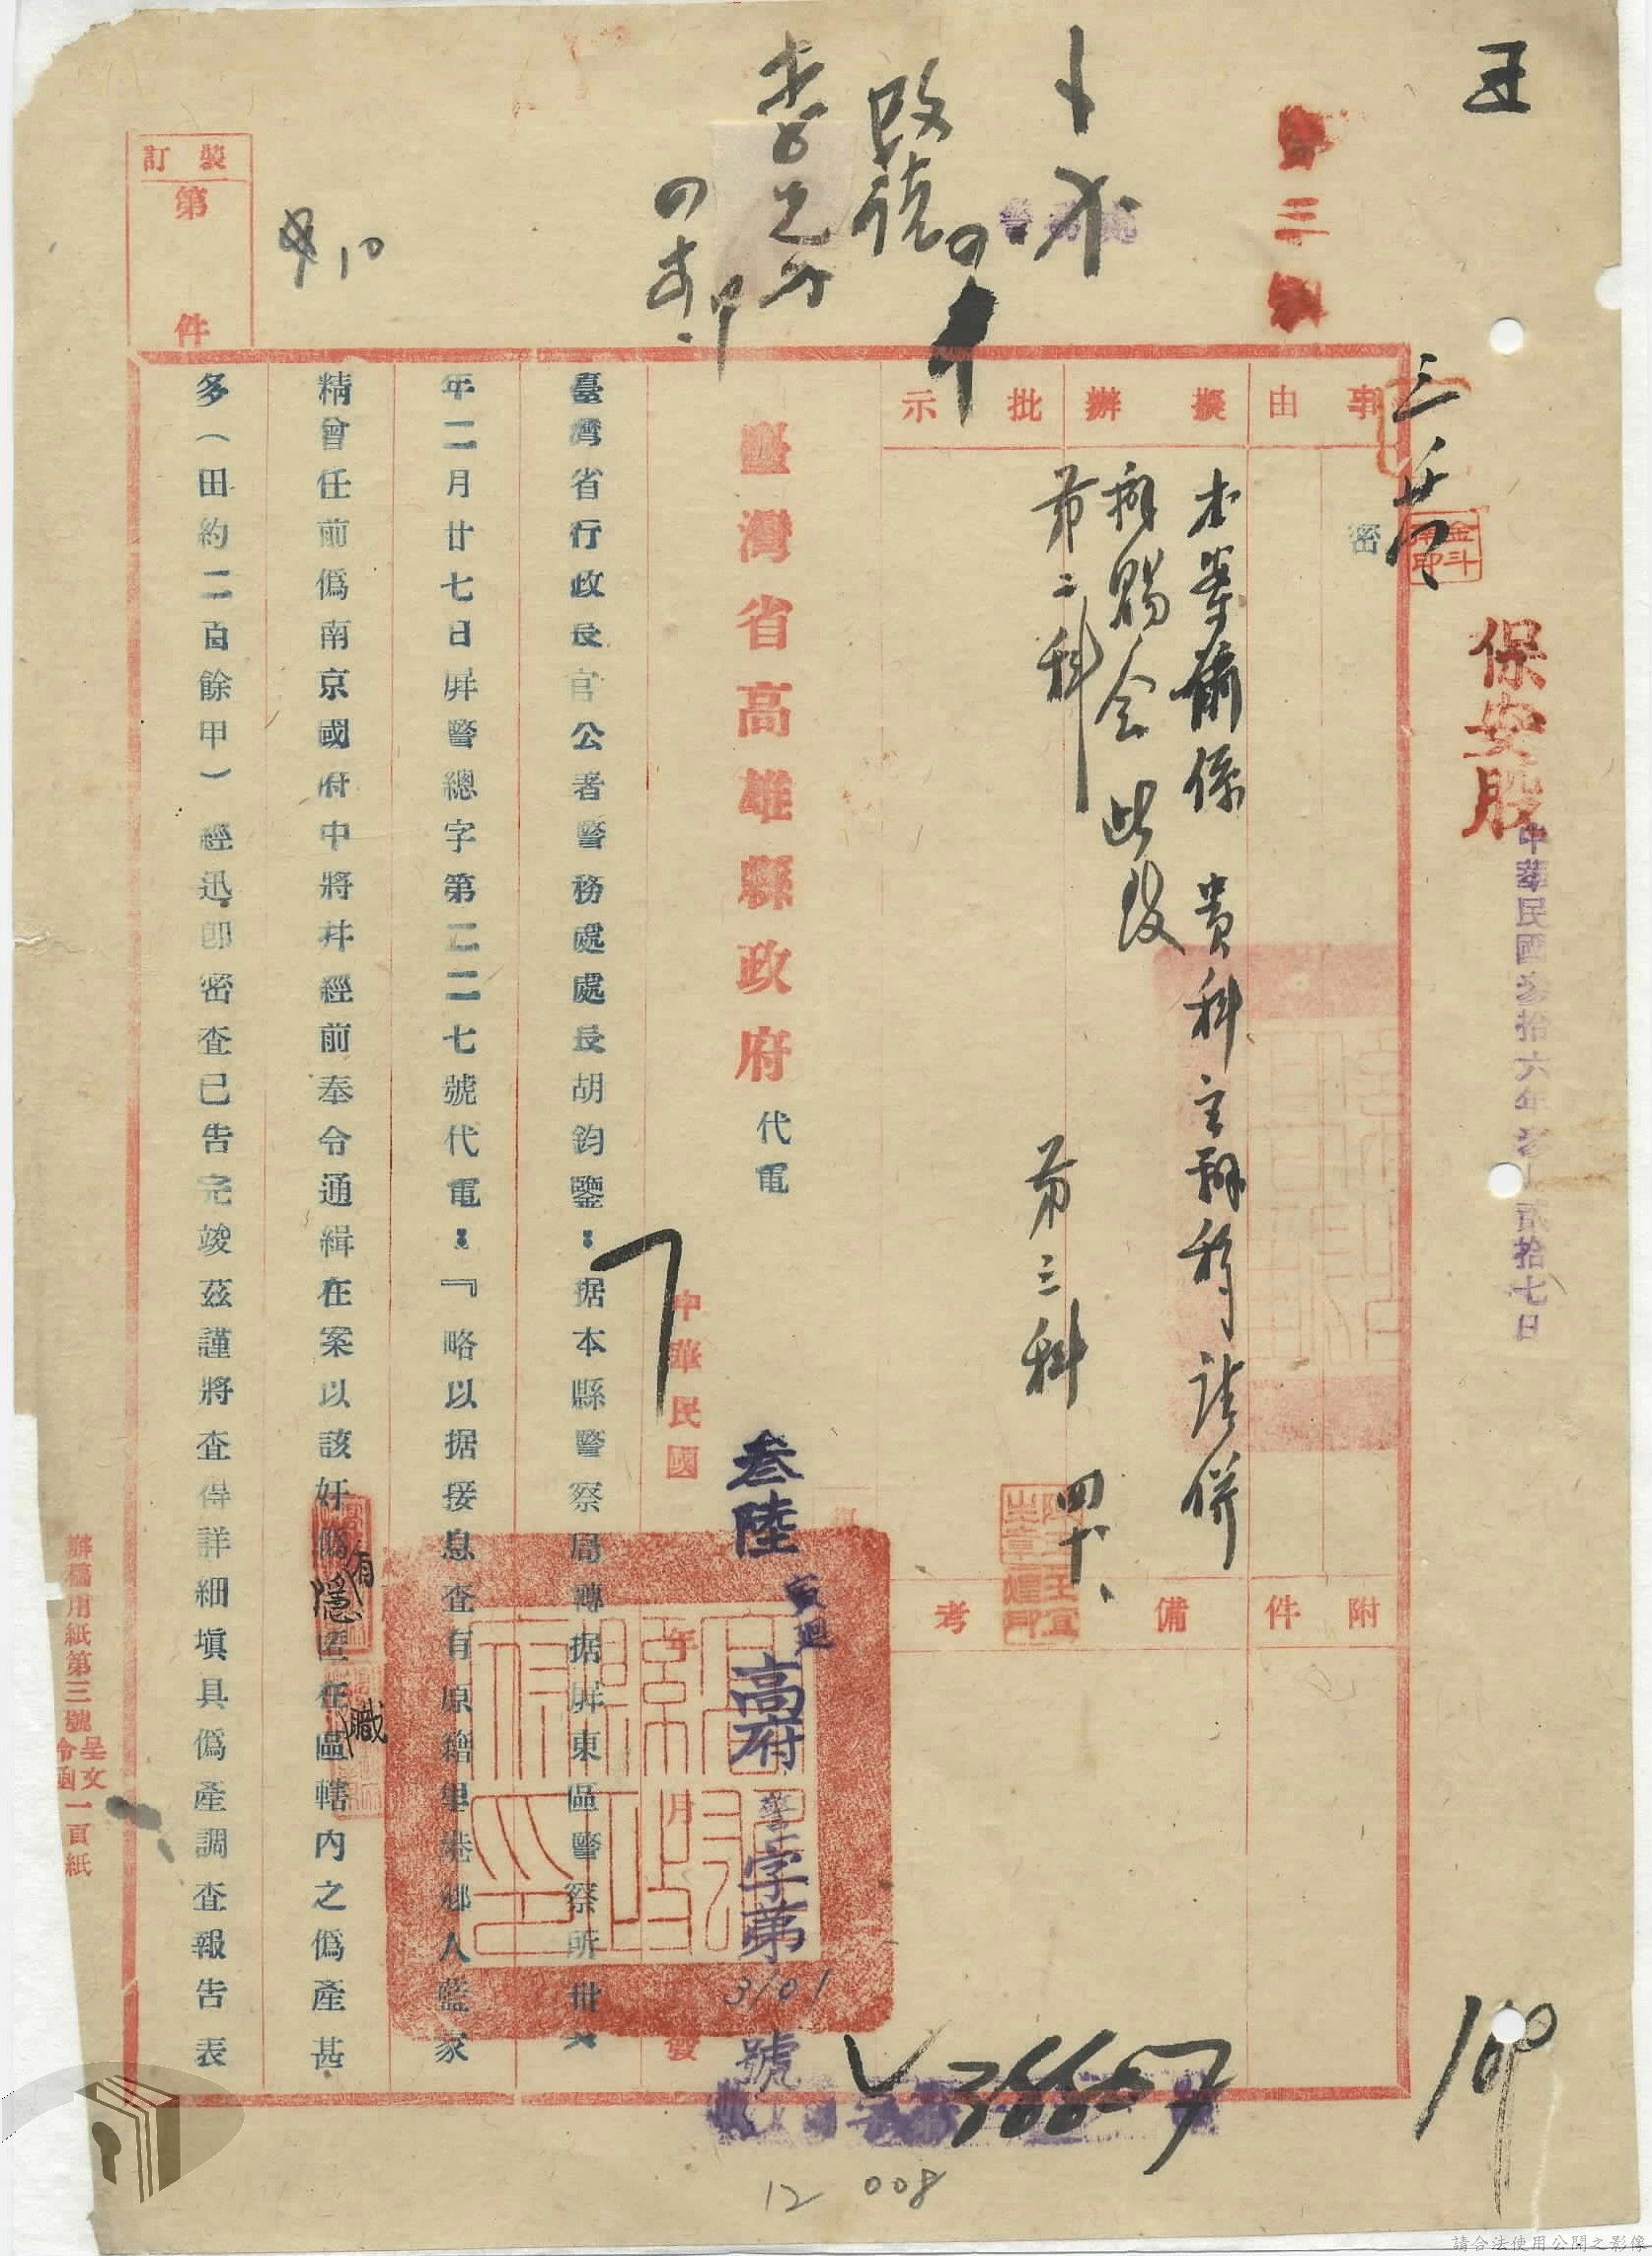 王
第三科
保安股
中華民國參拾六年參月貳拾七日
事由
擬辦
批示
密
本案前係 貴科主辦移請併
辦賜会此致
第二科
第三科 四、十、
附件
備考
臺灣省高雄縣政府 代電
中華民國 年 月 發
叁陸
高府警字第3101號
36657
臺灣省行政長官公署警務處處長胡鈞鑒：据本縣警察局轉据屏東區警察所卅六
年二月廿七日屏警總字第二二七號代電：『略以据接息查有原籍里港鄉人藍家
精曾任前偽南京國府中將幷經前奉令通緝在案以該奸偽隱匿在區轄內之偽產甚
有
職
多（田約二百餘甲）經迅即密查已告完竣茲謹將查得詳細填具偽產調查報告表
裝訂
第 件
10
辦檔用紙第三號
呈文
令函
一百紙
12 008
109
請合法使用公開之影像